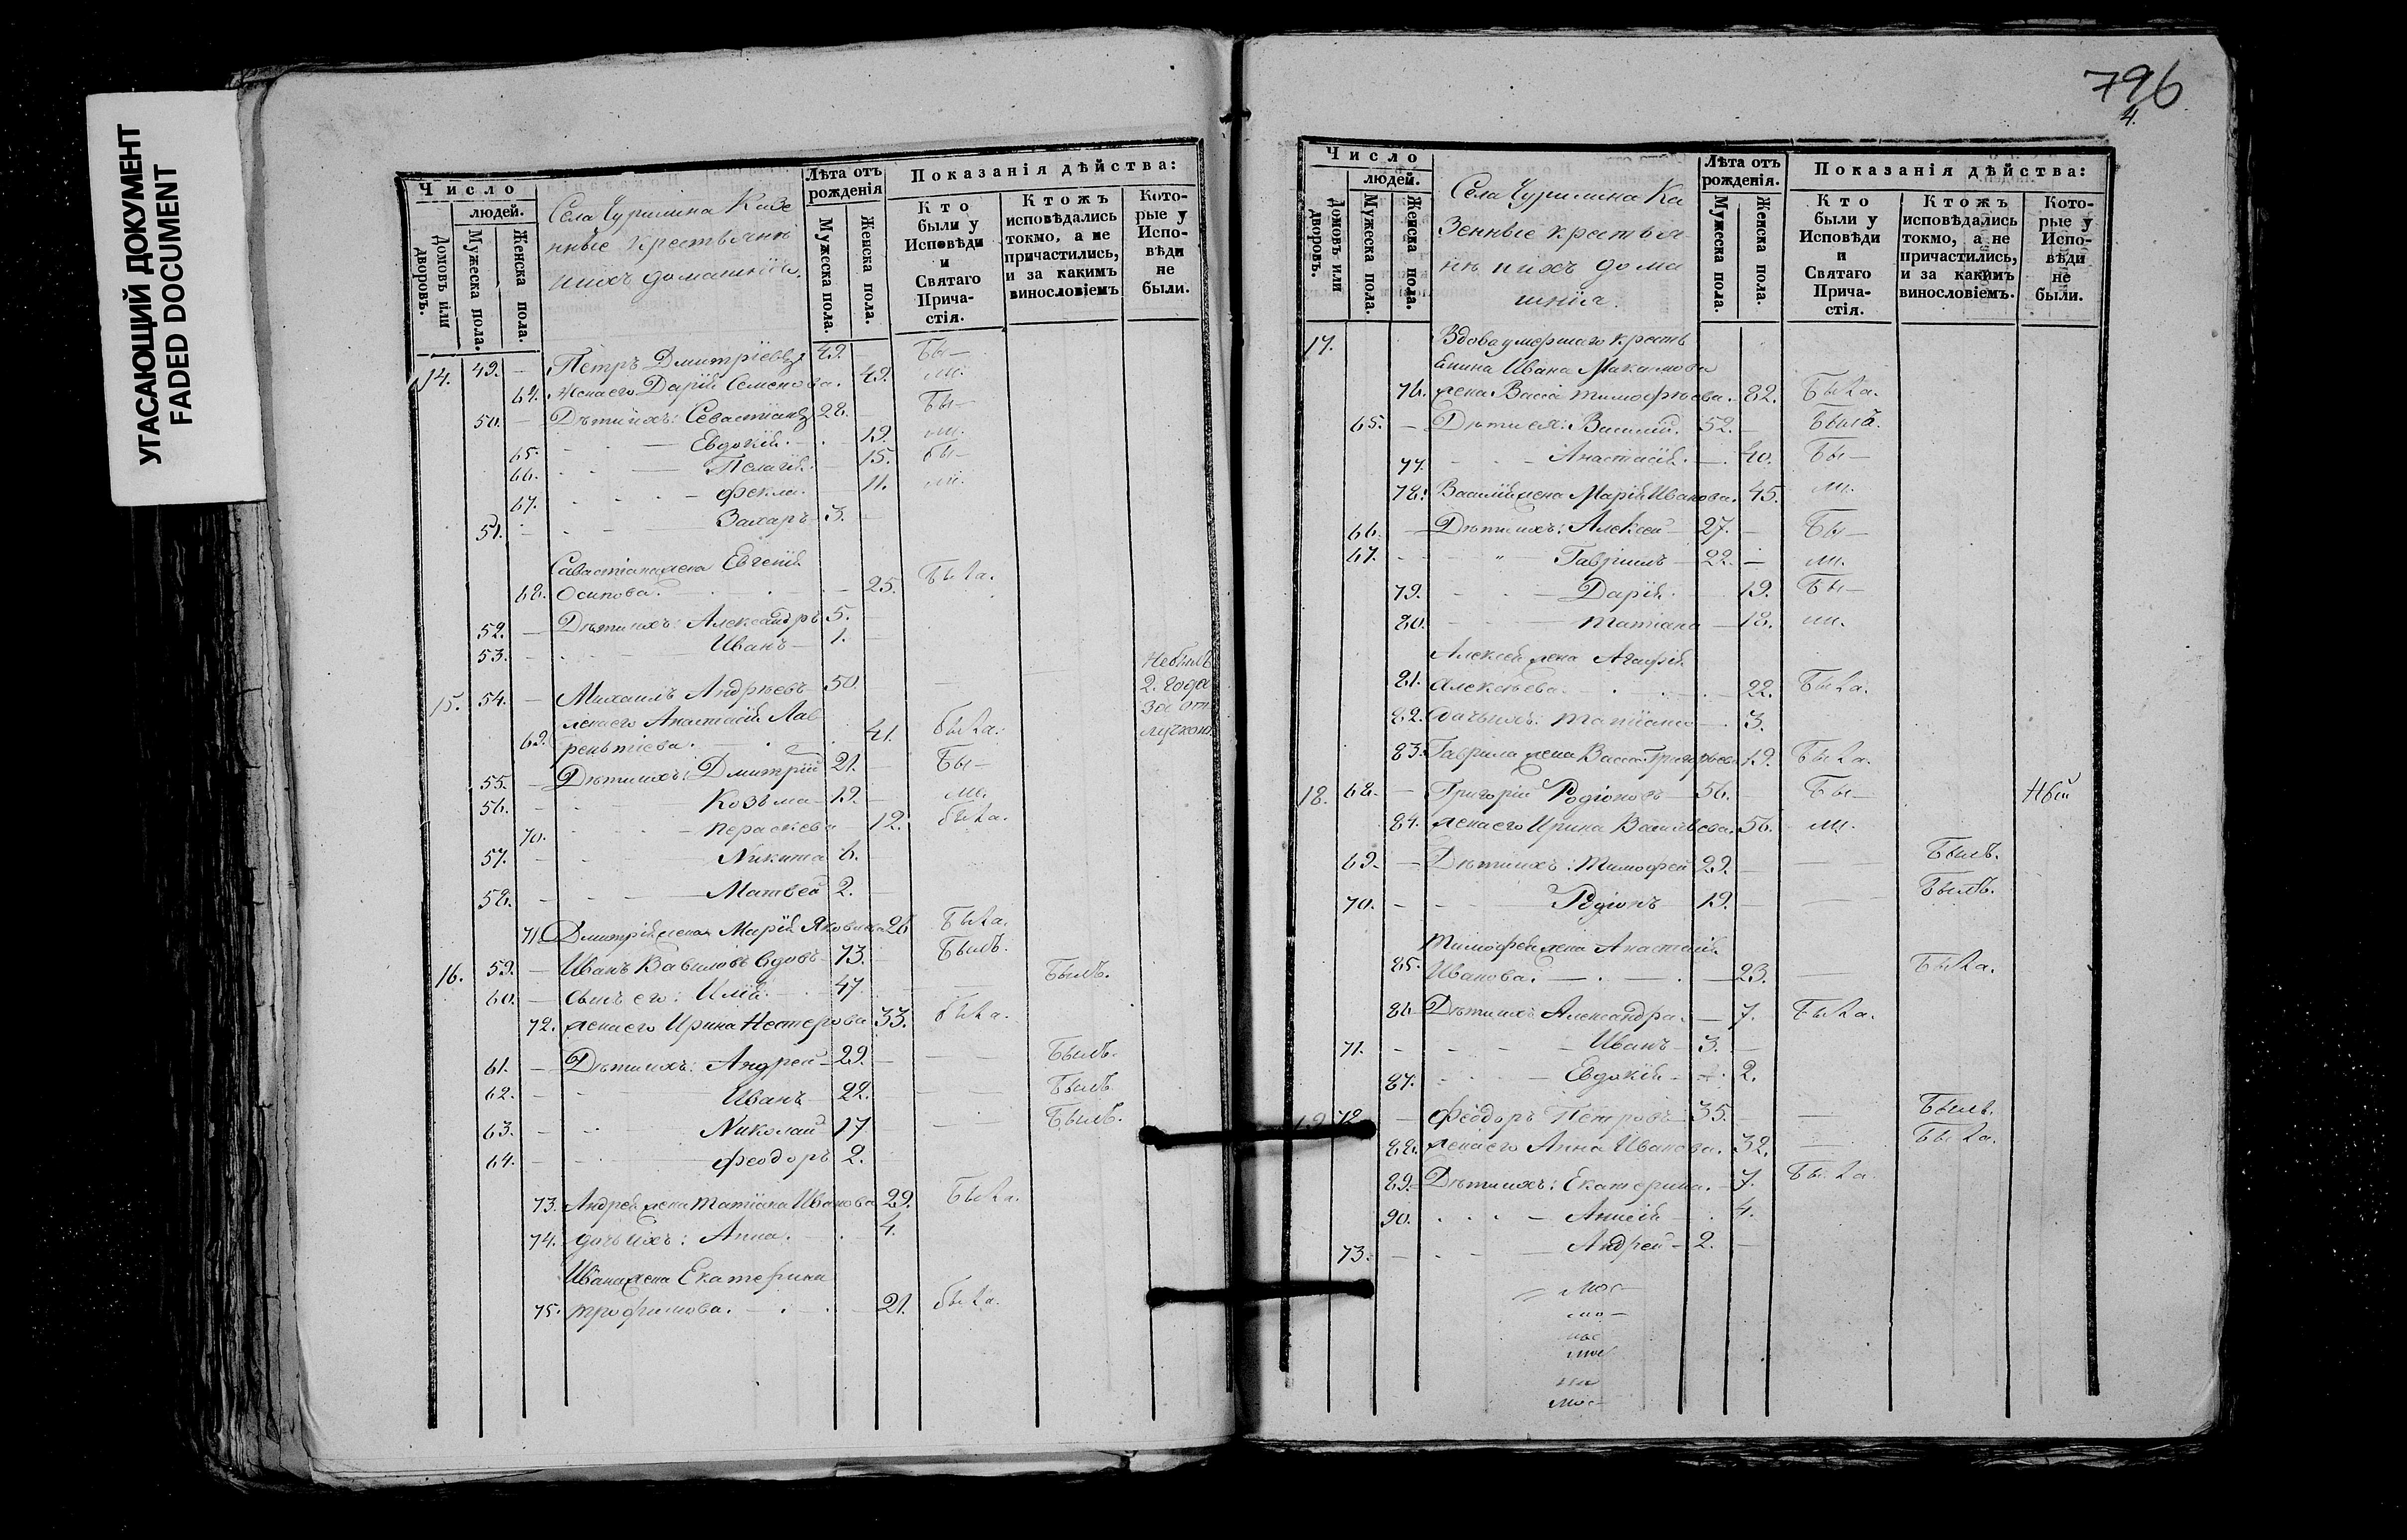 УГАСАЮЩИЙ ДОКУМЕНТ
FADED DOCUMENT
Число
людей.
Домовъ или дворовъ.
Мужеска пола.
Женска пола.
Села Чурилина Казе
нные крестьяни
ихъ домашнія.
Лѣта отъ рожденія
Мужеска пола.
Женска пола.
Показанія дѣйства:
Кто были у Исповѣди и Святаго Причастія.
Ктожъ исповѣдались токмо, а не причастились, и за какимъ винословіемъ
Которые у Исповѣди не были.
14. 49. — Петръ Дмитріевъ 49. — Бы—
64. Жена его Дарія Семенова. 49. ли.
50. — Дѣти ихъ: Севастіанъ 28. — Бы—
65. Евдокія. 19. ли.
66. Пелагія. 15. бы—
67. Фекла. 11. ли.
51. Захаръ 3. —
Савастіана жена Евгенія
68. Осипова. 25. Была.
52. — Дѣти ихъ: Александръ 5. —
53. Иванъ 1. —
15. 54. — Михаилъ Андрѣевъ 50. — Небылъ
2. года
за от
лучкою
жена его Анастасія Лав
69. рентіева. 41. была.
55. — Дѣти ихъ: Дмитрій 21. — Бы—
56. Козьма 19. — ли.
70. Пераскева 12. была.
57. Никита 6. —
58. Матвей 2. —
71. Дмитрія жена Марія Яковлева 26 Была.
16. 59. — Иванъ Вавиловъ вдовъ 73. — Былъ.
60. — сынъ его: Илія. 47. — Былъ.
72. жена его Ирина Нестерова 33. была.
61. — Дѣти ихъ: Андрей 29. — Былъ.
62. Иванъ 22. — Былъ.
63. Николай 17 — Былъ.
64. Феодоръ 2. —
73. Андрея жена Матіана Иванова 29. Была.
74. дочь ихъ: Анна. 4.
Ивана жена Екатерина
75. Трофимова. 21. была.
796
4.
Число
людей.
Домовъ или дворовъ.
Мужеска пола.
Женска пола.
Села Чурилина Ка
зенные крестья
нѣ ихъ дома
шнія.
Лѣта отъ рожденія.
Мужеска пола.
Женска пола.
Показанія дѣйства:
Кто были у Исповѣди и Святаго Причастія.
Ктожъ исповѣдались токмо, а не причастились, и за какимъ винословіемъ.
Которые у Исповѣди не были.
17. Вдова умершаго кресть
енина Ивана Максимова
76. жена Васса Тимофѣева. 82. Была.
65. — Дѣти ея: Василій. 52. — былъ.
77. Анастасія. 40. Бы—
78. Василія жена Марія Иванова. 45. ли.
66. — Дѣти ихъ: Алексей 27. — Бы—
67. Гавріилъ 22. — ли.
79. Дарія. 19. Бы—
80. Татіана 18. ли.
Алексея жена Агафія
81. Алексѣева. 22. Была.
82. дочь ихъ: Татіана 3.
83. Гаврила жена Васса Григорьева 19. Была.
18. 68. — Григорій Родіоновъ 56. — Бы—
84. жена его Ирина Васильева. 56. ли.
69. — Дѣти ихъ: Тимофей 29. — Былъ.
70. Родіонъ 19. — Былъ.
Тимофея жена Анастасія
85. Иванова. 23. Была.
86 Дѣти ихъ Александра. 7. Была.
71. Иванъ 3. —
87. Евдокія 2.
19. 72. — Феодоръ Петровъ 35. — Былъ.
88. жена его Анна Иванова. 32. Была.
89. Дѣти ихъ: Екатерина. 7. Была
90. 4.
73. Андрей 2. —